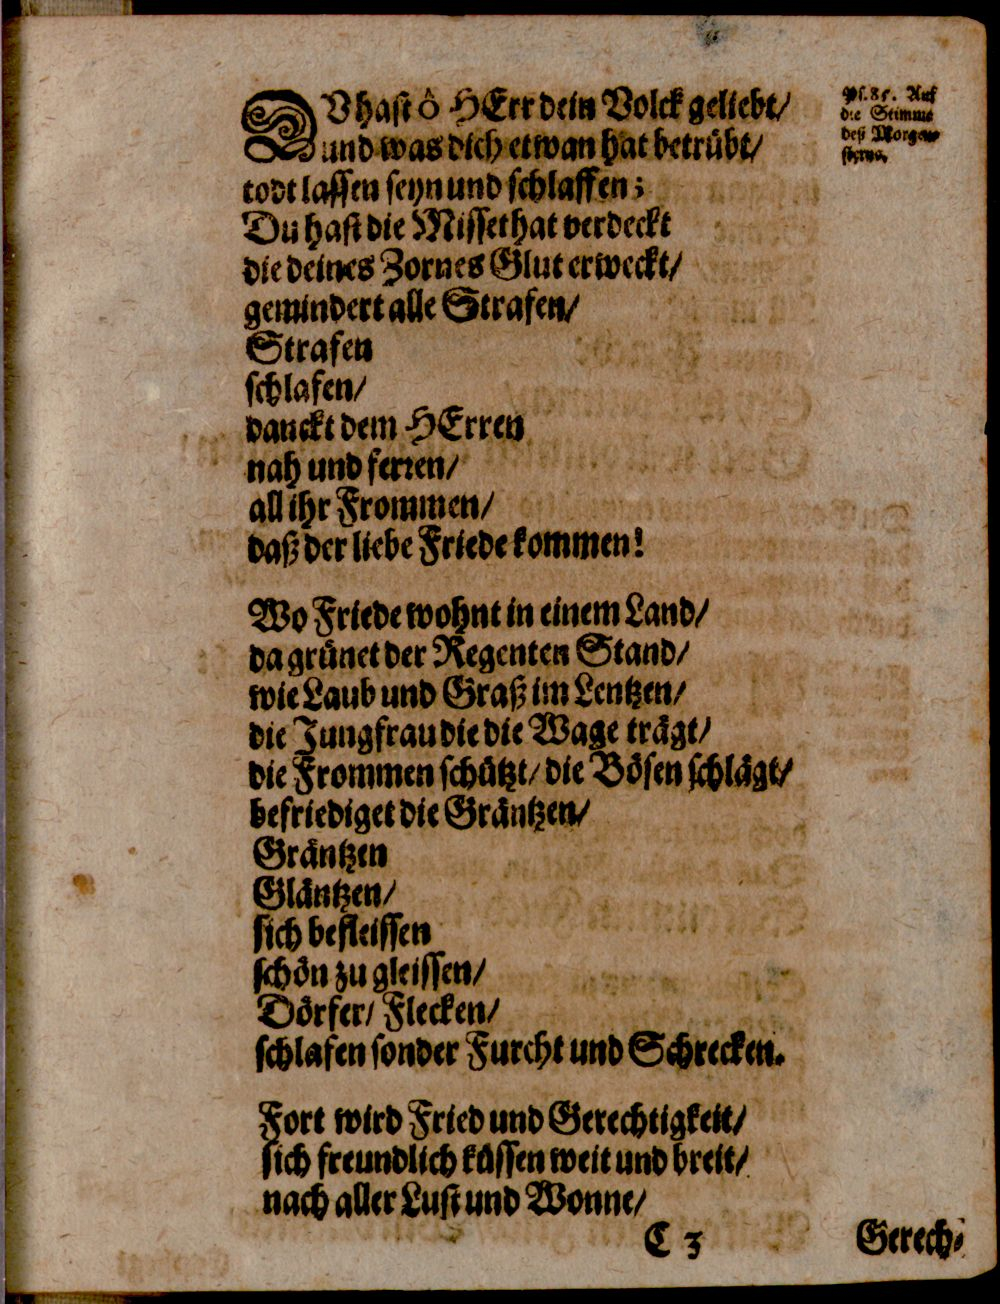 DV hast ô HErr dein Volck geliebt/
und was dich etwan hat betrübt/
todt lassen seyn und schlaffen;
Du hast die Missethat verdeckt
die deines Zornes Glut erweckt/
gemindert alle Strafen/
Strafen
schlafen/
danckt dem HErren
nah und ferren/
all ihr Frommen/
daß der liebe Friede kommen!
Wo Friede wohnt in einem Land/
da grünet der Regenten Stand/
wie Laub und Graß im Lentzen/
die Jungfrau die die Wage trägt/
die Frommen schützt/ die Bösen schlägt/
befriediget die Gräntzen/
Gräntzen
Gläntzen/
sich befleissen
schön zu gleissen/
Dörfer/ Flecken/
schlafen sonder Furcht und Schrecken.
Fort wird Fried und Gerechtigkeit/
sich freundlich küssen weit und breit/
nach aller Lust und Wonne/
C 3 Gerech-
Ps. 85. Auf
die Stimme
deß Morgen-
sterns.